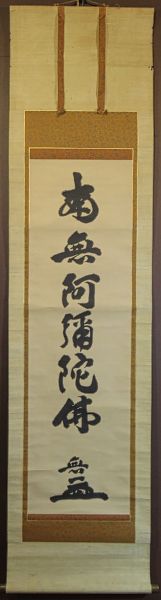 南無阿彌陀佛
無